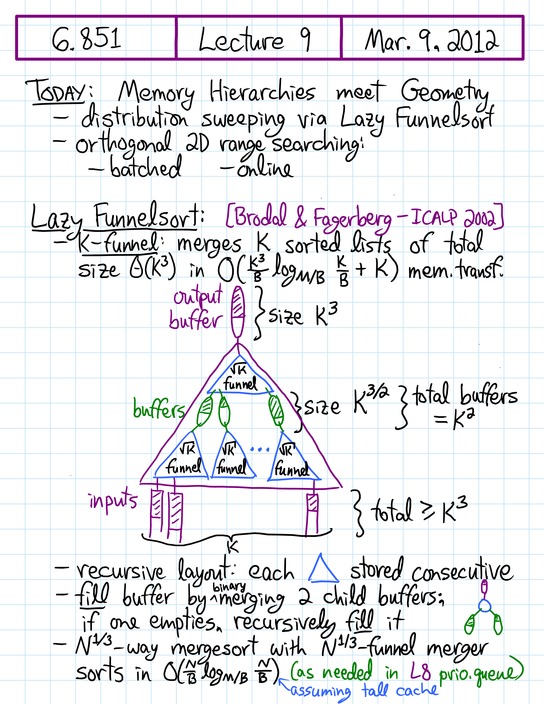 6.851 Lecture 9 Mar. 9, 2012
TODAY: Memory Hierarchies meet Geometry
– distribution sweeping via Lazy Funnelsort
– orthogonal 2D range searching:
– batched – online
Lazy Funnelsort: [Brodal & Fagerberg – ICALP 2002]
– K-funnel: merges K sorted lists of total
size Θ(K³) in O(K³/B log_{M/B} K/B + K) mem. transf.
output
buffer
} size K³
√K
funnel
buffers
} size K^{3/2} } total buffers
= K²
√K
funnel
√K
funnel
...
√K
funnel
inputs
} total ≥ K³
K
– recursive layout: each △ stored consecutive
– fill buffer by binary merging 2 child buffers;
if one empties, recursively fill it
– N^{1/3}-way mergesort with N^{1/3}-funnel merger
sorts in O(N/B log_{M/B} N/B) (as needed in L8 prio. queue)
assuming tall cache